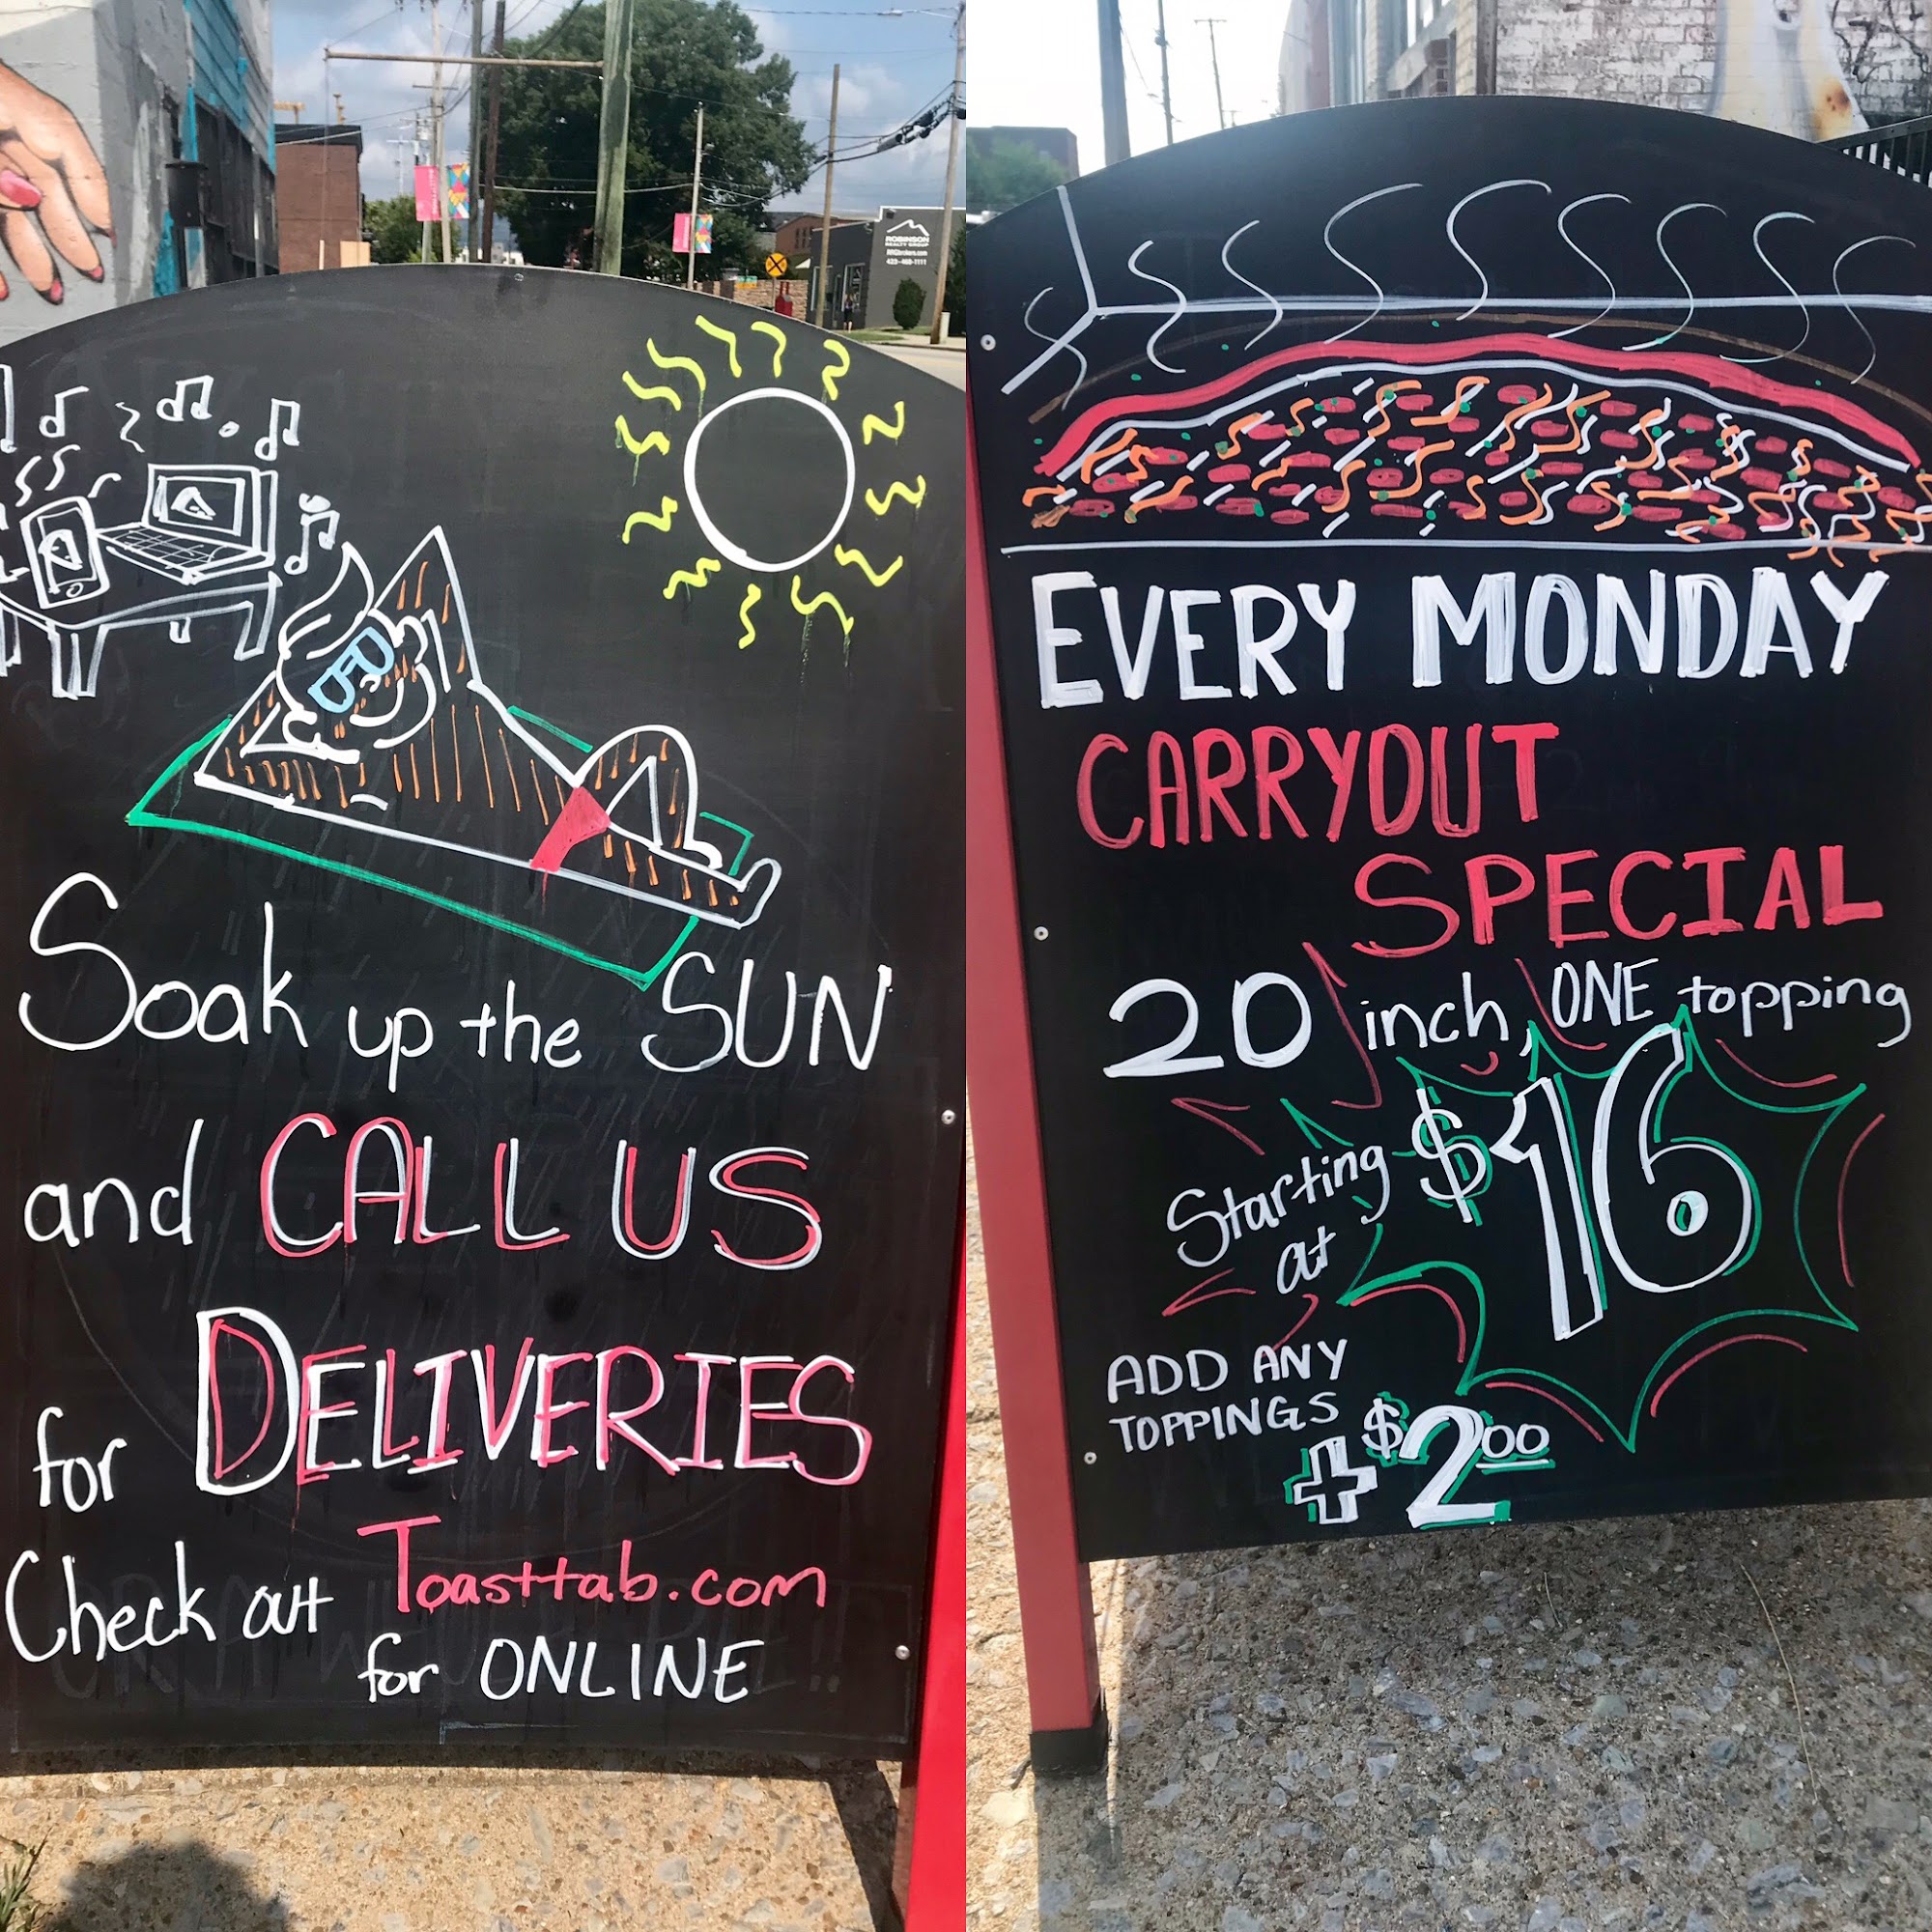 ROBINSON
REALTY GROUP
RRGbrokers.com
423-468-1111
Soak up the SUN
and CALL US
for DELIVERIES
Check out Toasttab.com
for ONLINE
EVERY MONDAY
CARRYOUT
SPECIAL
20 inch, ONE topping
Starting at $16
ADD ANY
TOPPINGS
+ $2.00